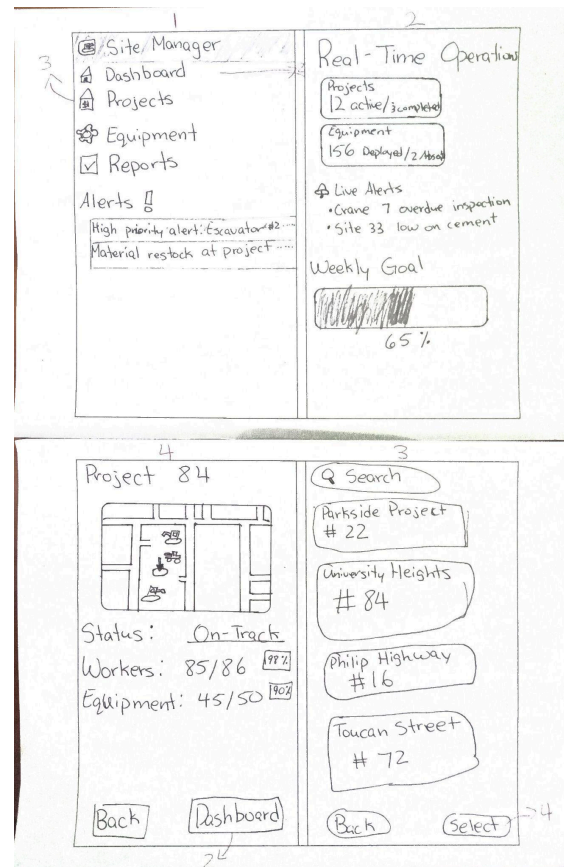 1
Site Manager
Dashboard
3
Projects
Equipment
Reports
Alerts !
High priority alert: Excavator #2 ....
Material restock at project ....
2
Real-Time Operations
Projects
12 active/3 completed
Equipment
156 Deployed/2
Live Alerts
•Crane 7 overdue inspection
•Site 33 low on cement
Weekly Goal
65 %
4
Project 84
Status: On-Track
Workers: 85/86 98%
Equipment: 45/50 90%
Back
Dashboard
2
3
Search
Parkside Project
# 22
University Heights
# 84
Philip Highway
#16
Toucan Street
# 72
Back
Select
4